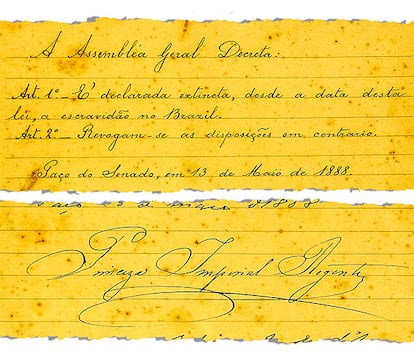 A Assembléa Geral Decreta:
Art. 1º — É declarada extincta, desde a data desta
lei, a escravidão no Brazil.
Art. 2º — Revogam-se as disposições em contrario.
Paço do Senado, em 13 de Maio de 1888.
Princeza Imperial Regente